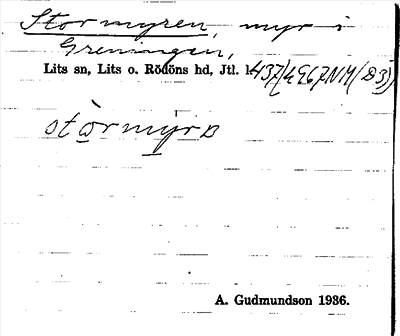 Stormyren, myr i
Greningen,
Lits sn, Lits o. Rödöns hd, Jtl.
stòrmyrn
A. Gudmundson 1936.